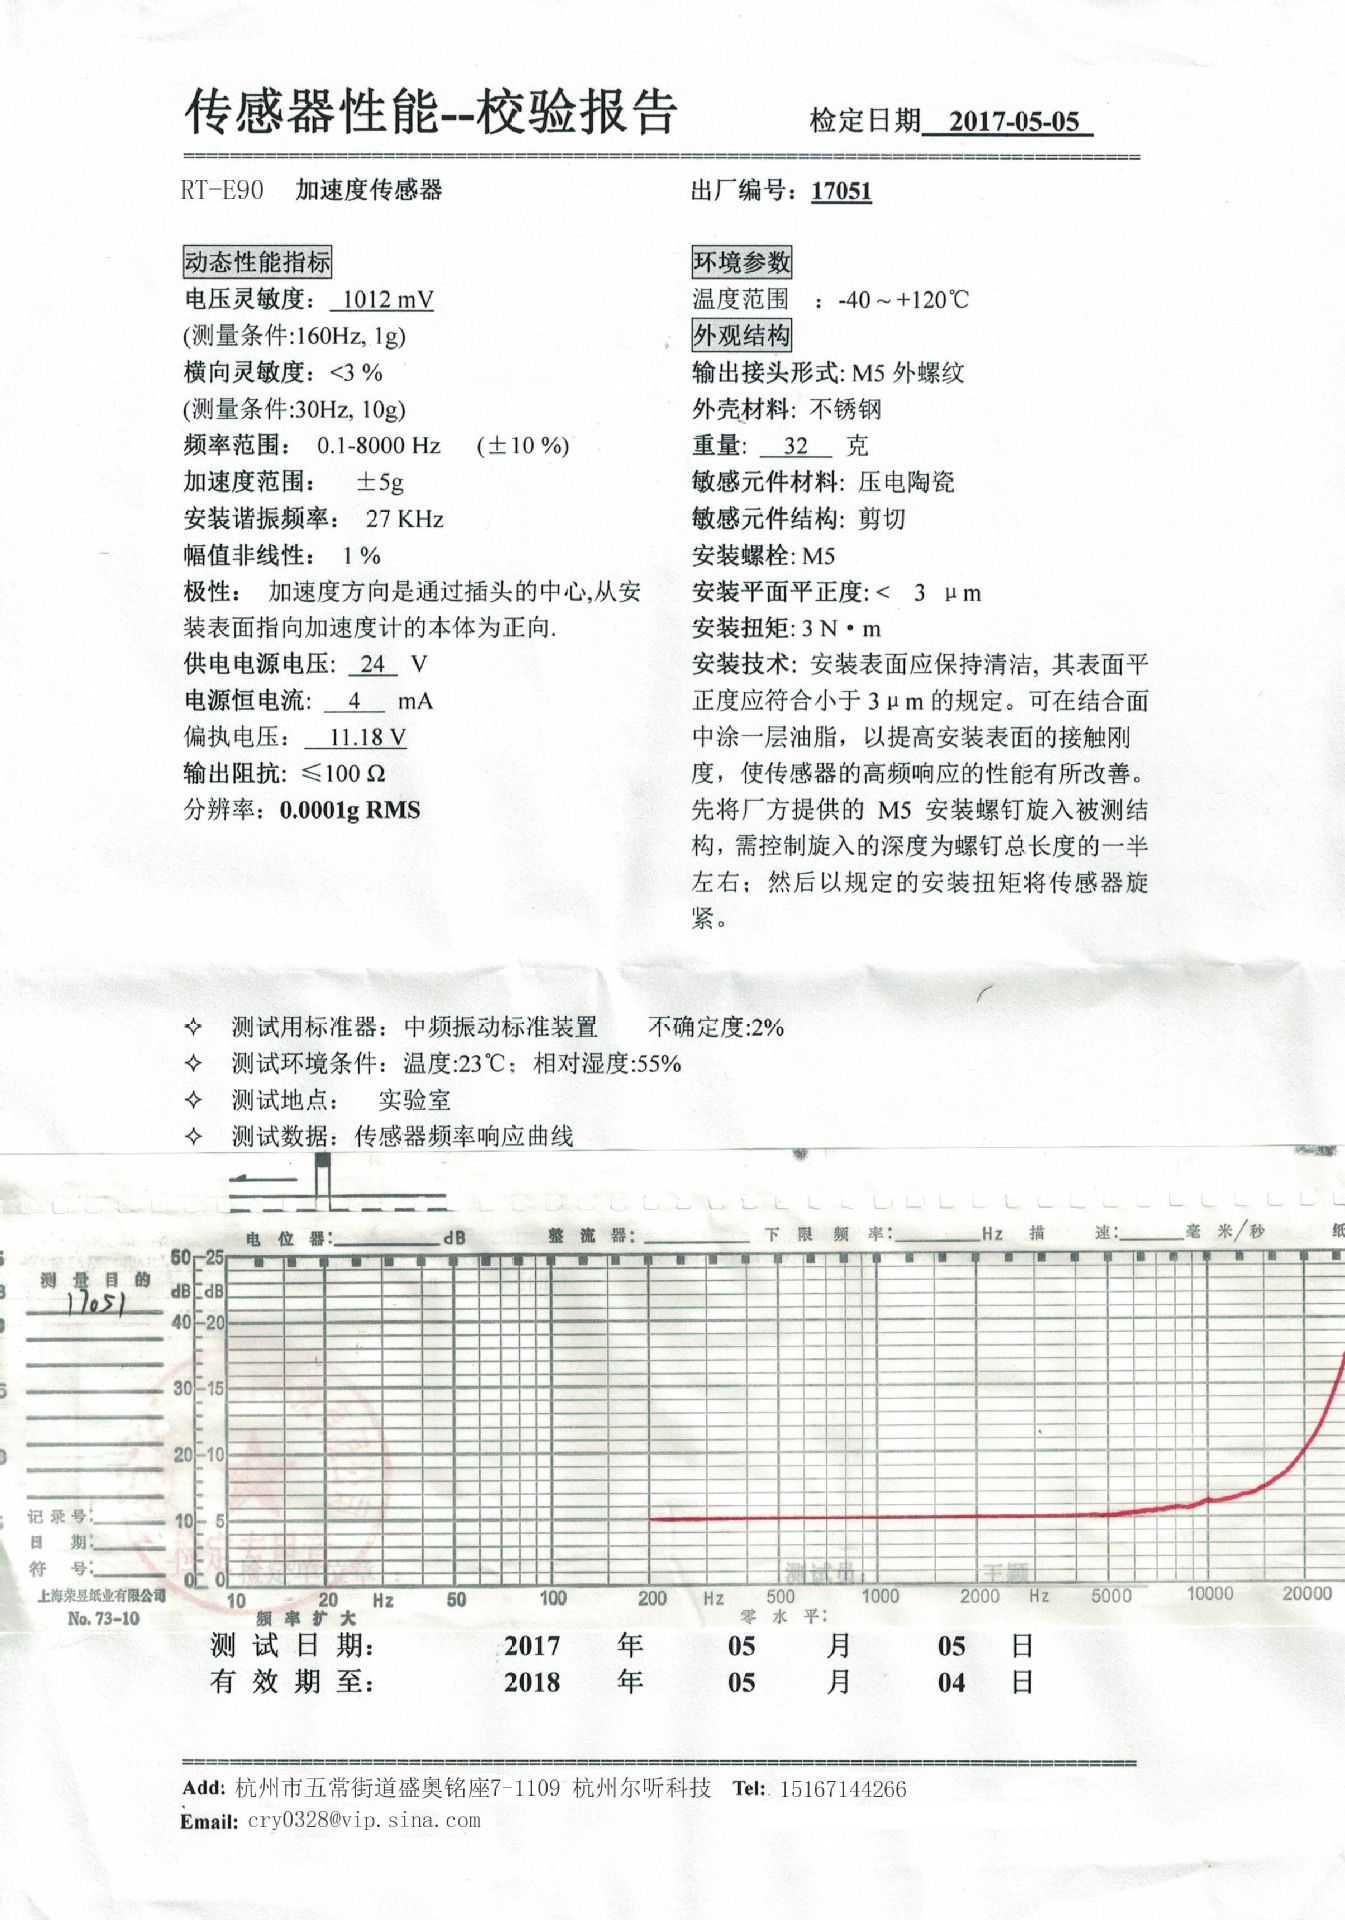 传感器性能--校验报告 检定日期 2017-05-05
RT-E90 加速度传感器 出厂编号：17051
动态性能指标
电压灵敏度： 1012 mV
(测量条件:160Hz, 1g)
横向灵敏度：<3 %
(测量条件:30Hz, 10g)
频率范围： 0.1-8000 Hz (±10 %)
加速度范围： ±5g
安装谐振频率： 27 KHz
幅值非线性： 1 %
极性： 加速度方向是通过插头的中心,从安
装表面指向加速度计的本体为正向.
供电电源电压: 24 V
电源恒电流: 4 mA
偏执电压： 11.18 V
输出阻抗: ≤100 Ω
分辨率：0.0001g RMS
环境参数
温度范围 ：-40～+120℃
外观结构
输出接头形式: M5 外螺纹
外壳材料: 不锈钢
重量: 32 克
敏感元件材料: 压电陶瓷
敏感元件结构: 剪切
安装螺栓: M5
安装平面平正度:< 3 μm
安装扭矩: 3 N·m
安装技术: 安装表面应保持清洁, 其表面平
正度应符合小于 3 μm 的规定。可在结合面
中涂一层油脂，以提高安装表面的接触刚
度，使传感器的高频响应的性能有所改善。
先将厂方提供的 M5 安装螺钉旋入被测结
构，需控制旋入的深度为螺钉总长度的一半
左右；然后以规定的安装扭矩将传感器旋
紧。
✧ 测试用标准器：中频振动标准装置 不确定度:2%
✧ 测试环境条件：温度:23℃；相对湿度:55%
✧ 测试地点： 实验室
✧ 测试数据：传感器频率响应曲线
电位器: dB 整流器: 下限频率: Hz 描速: 毫米/秒 纸
测量目的
17051
50 25
dB dB
40 20
30 15
20 10
10 5
0 0
记录号:
日期:
符号:
上海荣昱纸业有限公司
No. 73-10
测试员: 王颖
10 20 Hz 50 100 200 Hz 500 1000 2000 Hz 5000 10000 20000
频率扩大 零水平:
测试日期: 2017 年 05 月 05 日
有效期至: 2018 年 05 月 04 日
Add: 杭州市五常街道盛奥铭座7-1109 杭州尔听科技 Tel: 15167144266
Email: cry0328@vip.sina.com